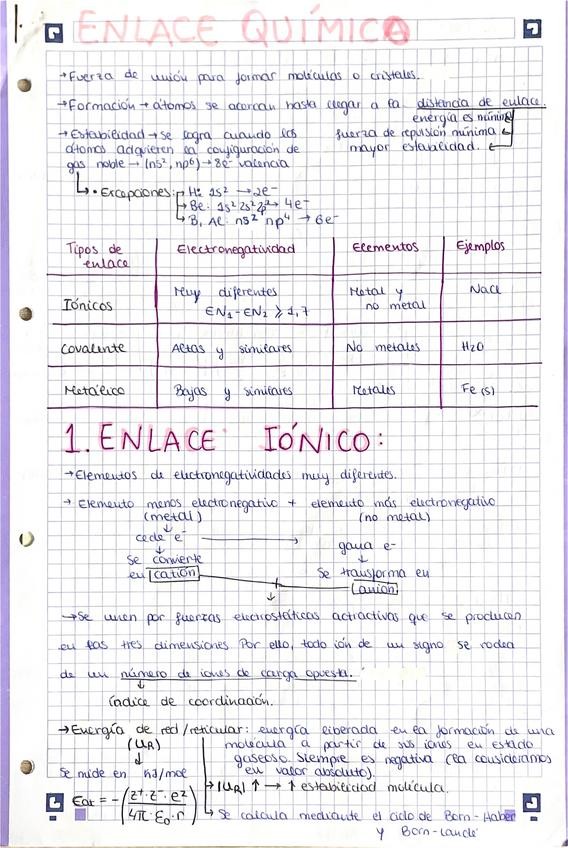 ENLACE QUÍMICO
→Fuerza de unión para formar moléculas o cristales.
→Formación → átomos se acercan hasta llegar a la distancia de enlace.
energía es mínima
→Estabilidad → se logra cuando los fuerza de repulsión mínima
átomos adquieren la configuración de mayor estabilidad.
gas noble → (ns², np⁶) → 8e⁻ valencia
• Excepciones: H: 1s² → 2e⁻
Be: 1s² 2s² 2p² → 4e⁻
B, Al: ns² np⁴ → 6e⁻
Tipos de enlace Electronegatividad Elementos Ejemplos
Iónicos Muy diferentes EN₁-EN₂ ⩾ 1,7 Metal y no metal NaCl
Covalente Altas y similares No metales H₂O
Metálico Bajas y similares Metales Fe (s)
1. ENLACE IÓNICO:
→Elementos de electronegatividades muy diferentes.
→ Elemento menos electronegativo + elemento más electronegativo
(metal) (no metal)
cede e⁻ → gana e⁻
Se convierte Se transforma en
en catión anión
→Se unen por fuerzas electrostáticas actractivas que se producen
en las tres dimensiones Por ello, todo ión de un signo se rodea
de un número de iones de carga opuesta.
índice de coordinación.
→Energía de red/reticular: energía liberada en la formación de una
(UR) molécula a partir de sus iones en estado
gaseoso. Siempre es negativa (la consideramos
Se mide en kJ/mol en valor absoluto).
→|UR| ↑ → ↑ estabilidad molécula.
Eat = -(z⁺·z⁻·e² / 4π·ε₀·r)
→ Se calcula mediante el ciclo de Born-Haber
y Born-Landé